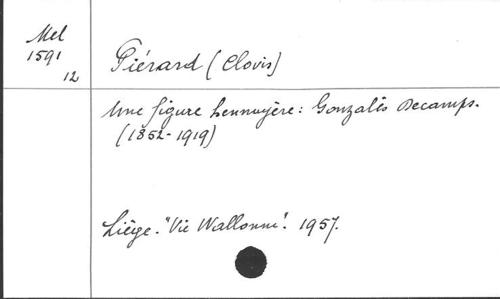 Mel
1591
12
Piérard (Clovis)
Une figure hennuyère : Gonzalès Decamps.
(1852-1919)
Liège. "Vie Wallonne". 1957.